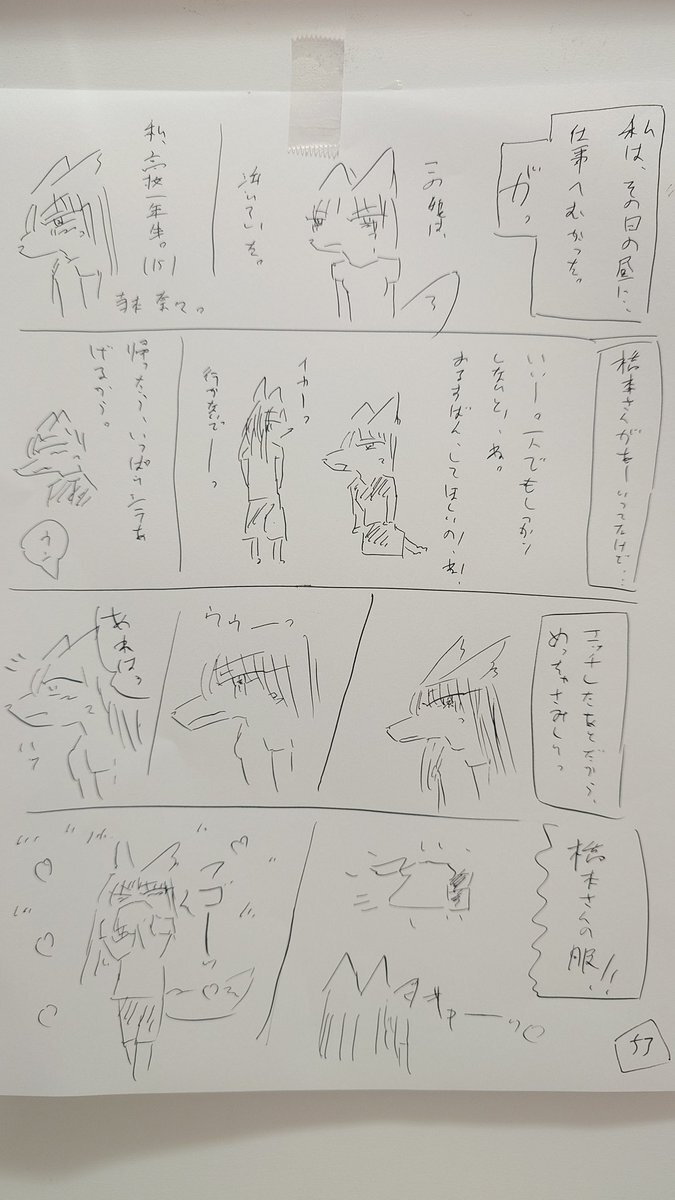 私は、その日の昼に…
仕事へむかった。
ガっ
この娘は、
泣いていた。
私、高校一年生。(15)
橋本さんがあーいってたけど…
いいー。一人でもしっかり
しないと、ね。
おるすばん、してほしいの、ね!
イヤーっ
行かないでーっ
帰ったら、いっぱい
げるから。
ウン
エッチしたあとだから、
めっちゃさみしいっ
ウゥーっ
あれはっ
橋本さんの服!!
57